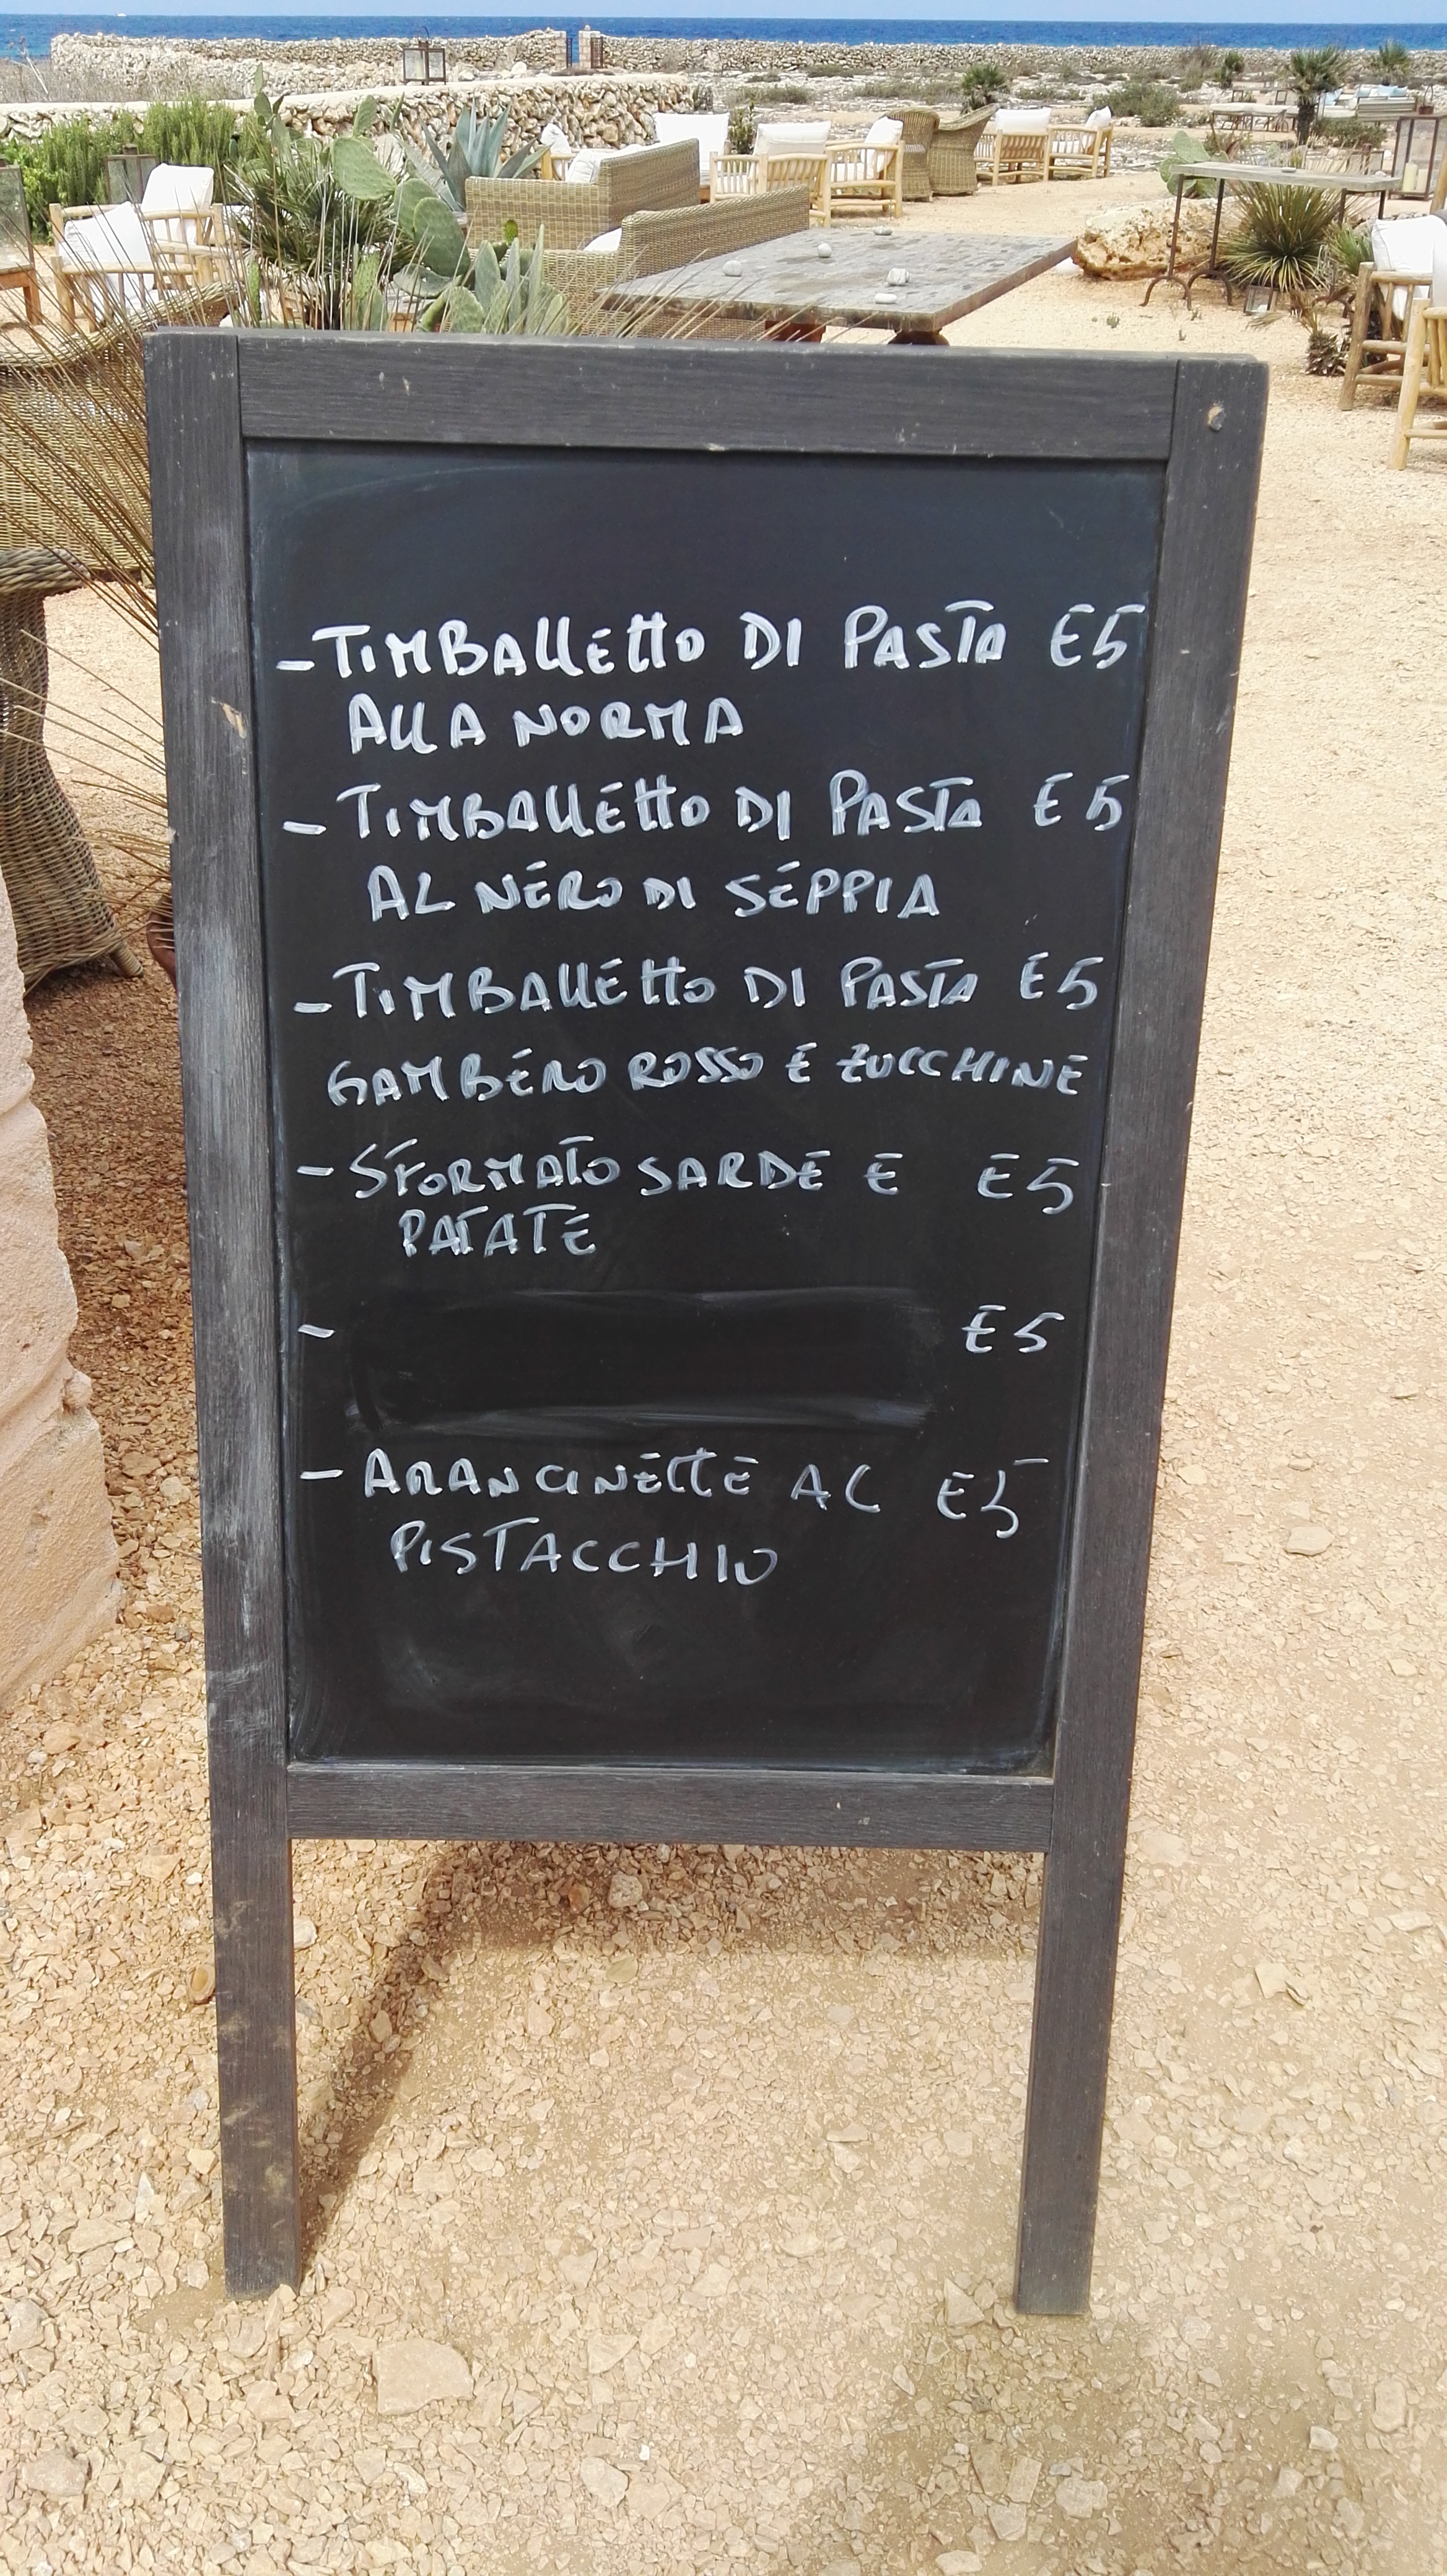 - TIMBALLETTO DI PASTA E5
ALLA NORMA
- TIMBALLETTO DI PASTA E5
AL NERO DI SEPPIA
- TIMBALLETTO DI PASTA E5
GAMBERO ROSSO E ZUCCHINE
- SFORMATO SARDE E E5
PATATE
- E5
- ARANCINETTE AL E5
PISTACCHIO